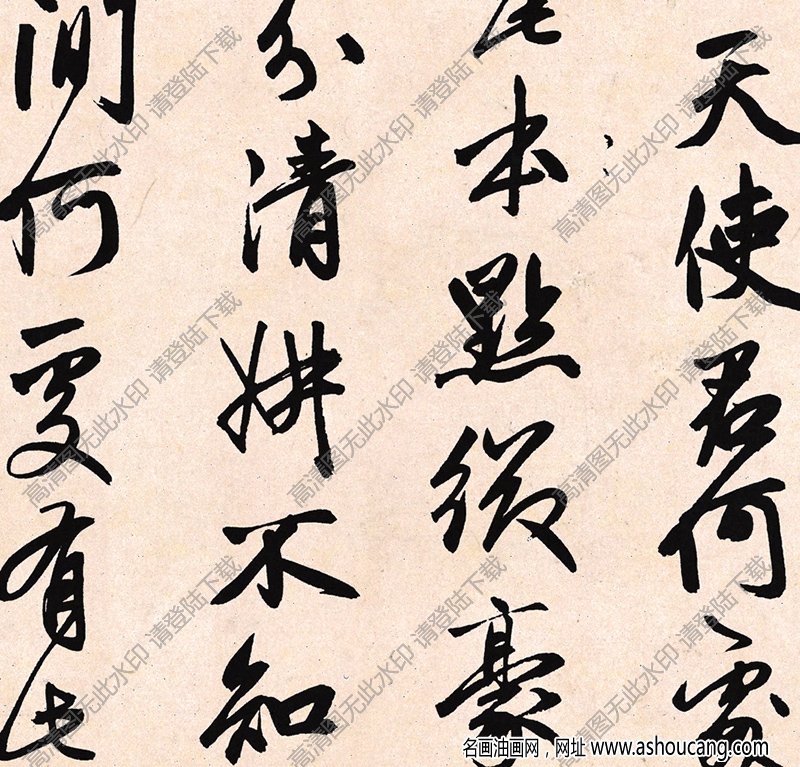 天使君何處
本點綴豪
分清妍不知
間何處有此
高清图无此水印 请登陆下载
高清图无此水印 请登陆下载
高清图无此水印 请登陆下载
高清图无此水印 请登陆下载
高清图无此水印 请登陆下载
高清图无此水印 请登陆下载
高清图无此水印 请登陆下载
高清图无此水印 请登陆下载
高清图无此水印 请登陆下载
名画油画网，网址 www.ashoucang.com